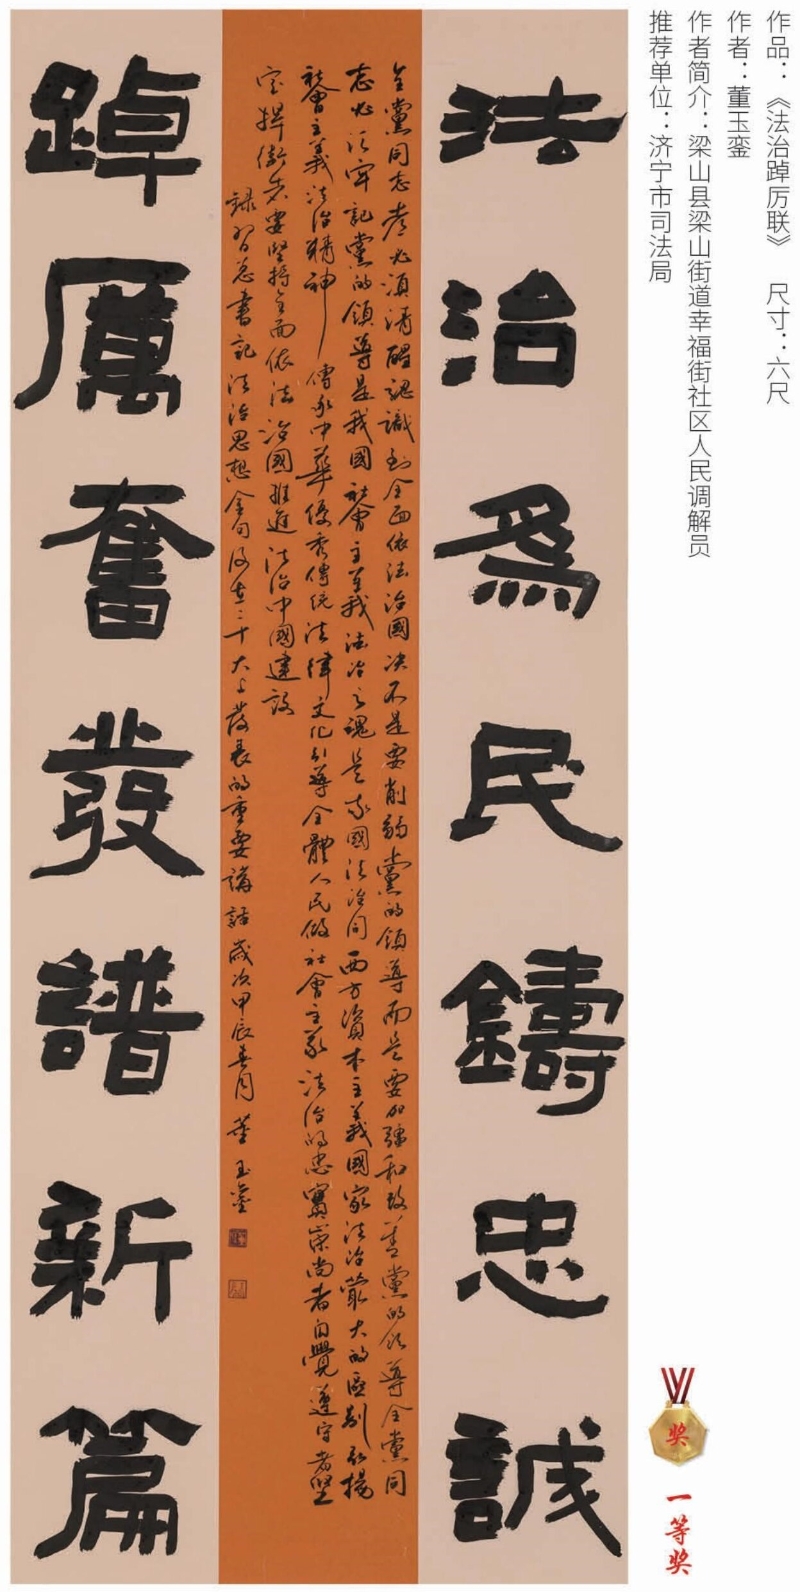 作品：《法治踔厉联》 尺寸：六尺
作者：董玉銮
作者简介：梁山县梁山街道幸福街社区人民调解员
推荐单位：济宁市司法局
奖
一等奖
法治為民鑄忠誠
全黨同志都必須清醒認識到全面依法治國决不是要削弱黨的領導而是要加強和改善黨的領導全黨同
志必須牢記黨的領導是我國社會主義法治之魂是我國法治同西方資本主義國家法治最大的區別弘揚
社會主義法治精神傳承中華優秀傳統法律文化引導全體人民做社會主義法治的忠實崇尚者自覺遵守者堅
定捍衛者要堅持全面依法治國推進法治中國建設
錄習總書記法治思想金句及在二十大上發表的重要講話歲次甲辰春月 董玉鑾
踔厲奮發譜新篇